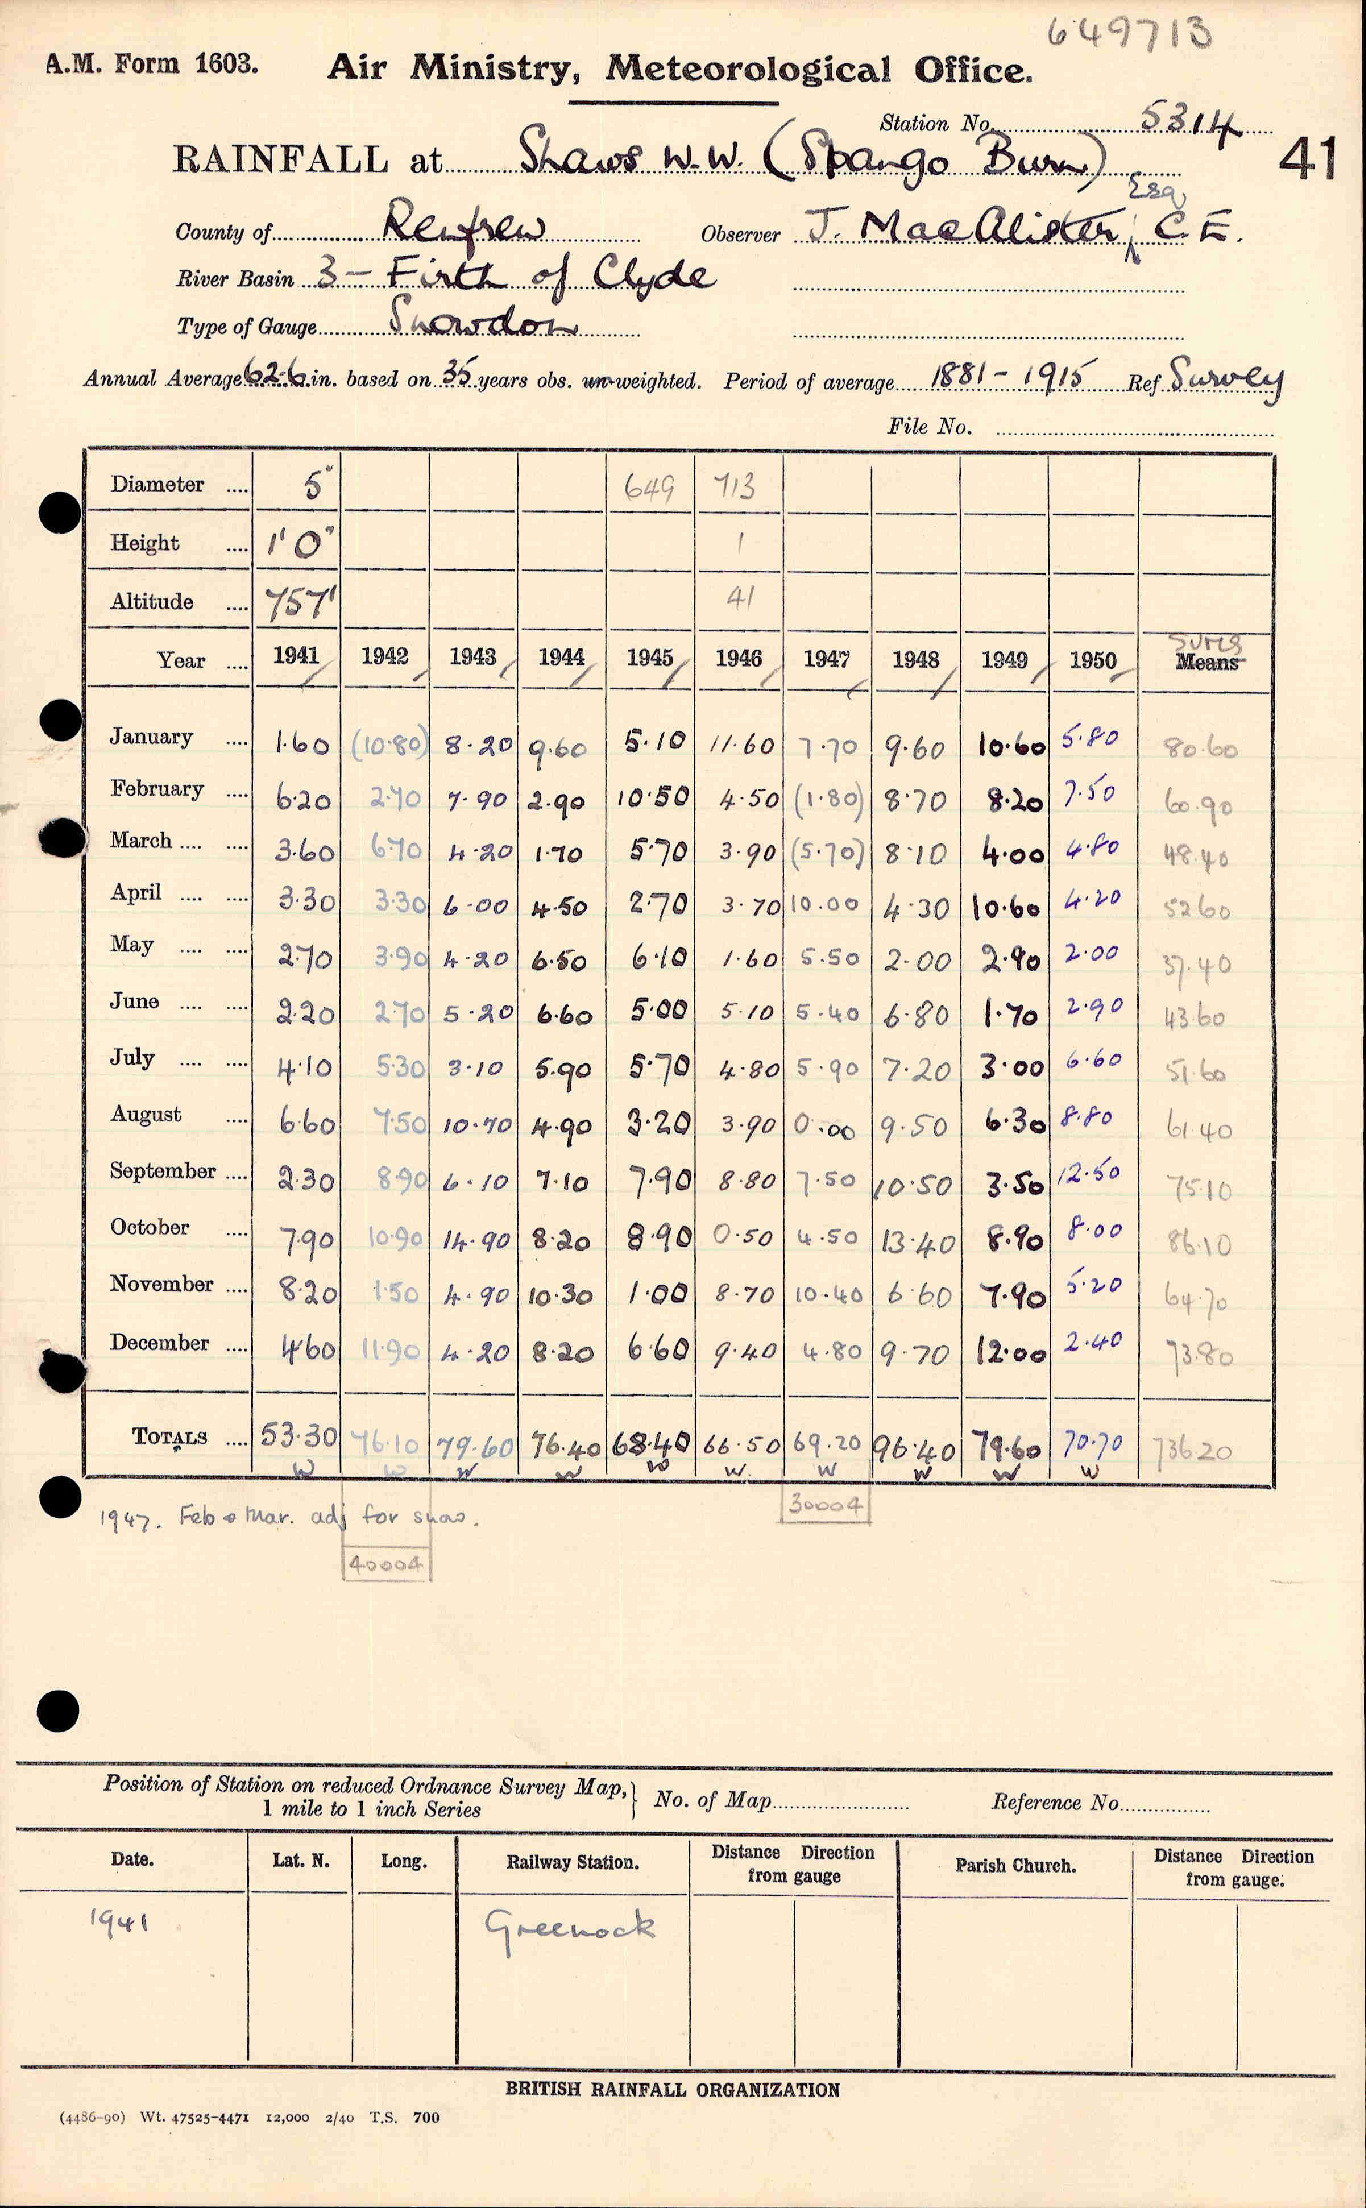 649713
A.M. Form 1603. Air Ministry, Meteorological Office.
Station No. 5314
RAINFALL at Shaws W.W. (Spango Burn) 41
Esq
County of Renfrew Observer J. MacAlister, C.E.
River Basin 3 – Firth of Clyde
Type of Gauge Snowdon
Annual Average 62.6 in. based on 35 years obs. un-weighted. Period of average 1881 – 1915 Ref Survey
File No.
Diameter .... 5" 649 713
Height .... 1' 0" 1
Altitude .... 757' 41
Sums
Year .... 1941 1942 1943 1944 1945 1946 1947 1948 1949 1950 Means
January .... 1.60 (10.80) 8.20 9.60 5.10 11.60 7.70 9.60 10.60 5.80 80.60
February .... 6.20 2.70 7.90 2.90 10.50 4.50 (1.80) 8.70 8.20 7.50 60.90
March .... .... 3.60 6.70 4.20 1.70 5.70 3.90 (5.70) 8.10 4.00 4.80 48.40
April .... .... 3.30 3.30 6.00 4.50 2.70 3.70 10.00 4.30 10.60 4.20 52.60
May .... .... 2.70 3.90 4.20 6.50 6.10 1.60 5.50 2.00 2.90 2.00 37.40
June .... .... 2.20 2.70 5.20 6.60 5.00 5.10 5.40 6.80 1.70 2.90 43.60
July .... .... 4.10 5.30 3.10 5.90 5.70 4.80 5.90 7.20 3.00 6.60 51.60
August .... 6.60 7.50 10.70 4.90 3.20 3.90 0.00 9.50 6.30 8.80 61.40
September .... 2.30 8.90 6.10 7.10 7.90 8.80 7.50 10.50 3.50 12.50 75.10
October .... 7.90 10.90 14.90 8.20 8.90 0.50 4.50 13.40 8.90 8.00 86.10
November .... 8.20 1.50 4.90 10.30 1.00 8.70 10.40 6.60 7.90 5.20 64.70
December .... 4.60 11.90 4.20 8.20 6.60 9.40 4.80 9.70 12.00 2.40 73.80
TOTALS .... 53.30 76.10 79.60 76.40 68.40 66.50 69.20 96.40 79.60 70.70 736.20
W W W W W W W W W W
30004
1947. Feb & Mar. adj for snow.
40004
Position of Station on reduced Ordnance Survey Map, } No. of Map Reference No.
1 mile to 1 inch Series
Date. Lat. N. Long. Railway Station. Distance Direction from gauge Parish Church. Distance Direction from gauge.
1941 Greenock
BRITISH RAINFALL ORGANIZATION
(4486-90) Wt. 47525-4471 12,000 2/40 T.S. 700